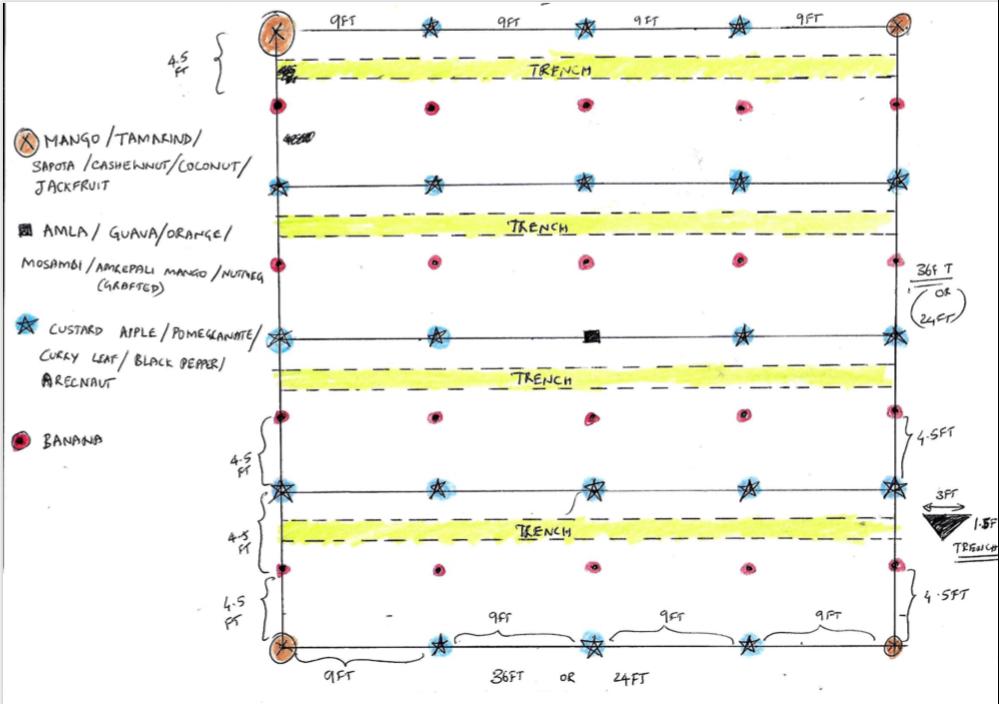 9FT 9FT 9FT 9FT
4.5 FT
TRENCH
MANGO/TAMARIND/
SAPOTA/CASHEWNUT/COCONUT/
JACKFRUIT
TRENCH
AMLA/ GUAVA/ORANGE/
MOSAMBI/AMREPALI MANGO/NUTMEG
(GRAFTED)
36FT
(OR
24FT)
CUSTARD APPLE/POMEGRANATE/
CURRY LEAF/BLACK PEPPER/
ARECNAUT
TRENCH
BANANA
4.5 FT
4.5FT
3FT
1.5F
TRENCH
4.5 FT
TRENCH
4.5 FT
4.5FT
9FT 9FT 9FT
9FT
36FT OR 24FT